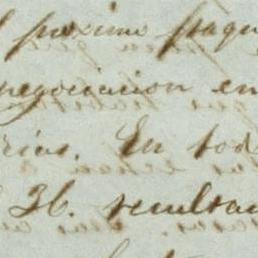 proximo paqu
negociacion en
rias. En tod
36. resulta